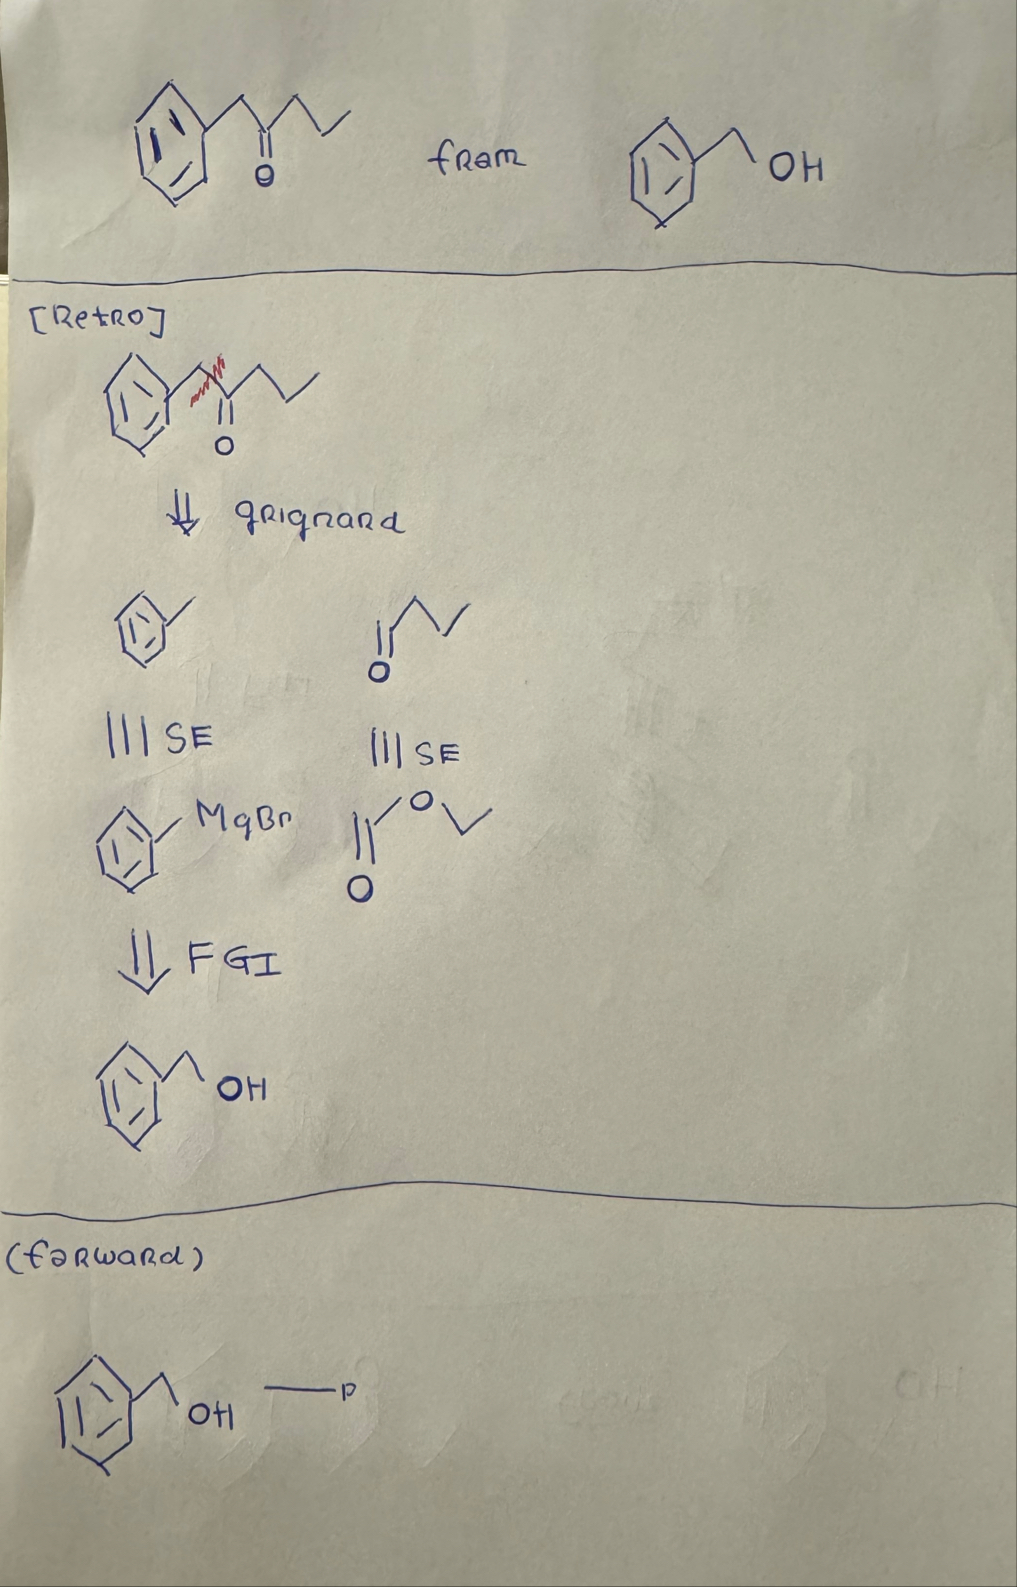 O
from
OH
[Retro]
O
grignard
O
||| SE
||| SE
MgBr
O
O
FGI
OH
(forward)
OH